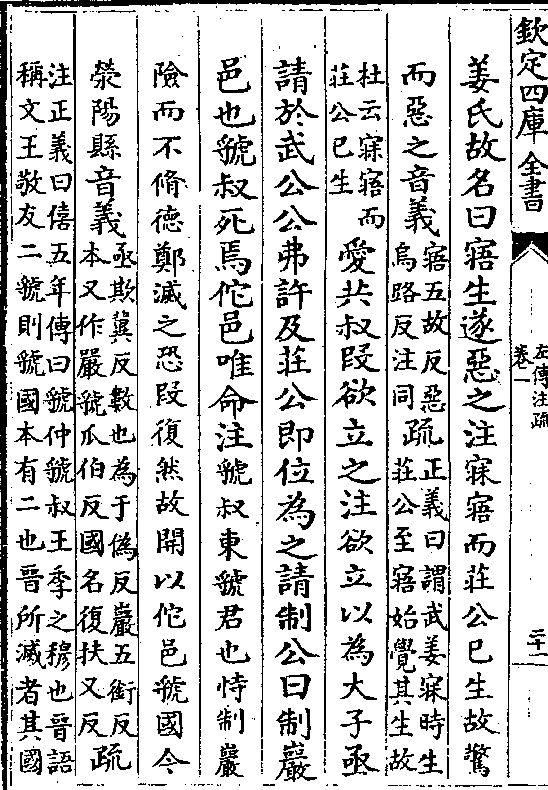 欽定四庫全書
左傳注疏
卷一
二十一
姜氏故名曰寤生遂惡之注寐寤而莊公已生故驚
而惡之音義
寤五故反惡
烏路反注同
疏
正義曰謂武姜寐時生
莊公至寤始覺其生故
杜云寐寤而
莊公已生
愛共叔段欲立之注欲立以為大子亟
請於武公公弗許及莊公即位為之請制公曰制巖
邑也虢叔死焉佗邑唯命注虢叔東虢君也恃制巖
險而不脩德鄭滅之恐段復然故開以佗邑虢國今
滎陽縣音義
亟欺冀反數也為于偽反巖五銜反
本又作嚴虢瓜伯反國名復扶又反
疏
注正義曰僖五年傳曰虢仲虢叔王季之穆也晉語
稱文王敬友二虢則虢國本有二也晉所滅者其國